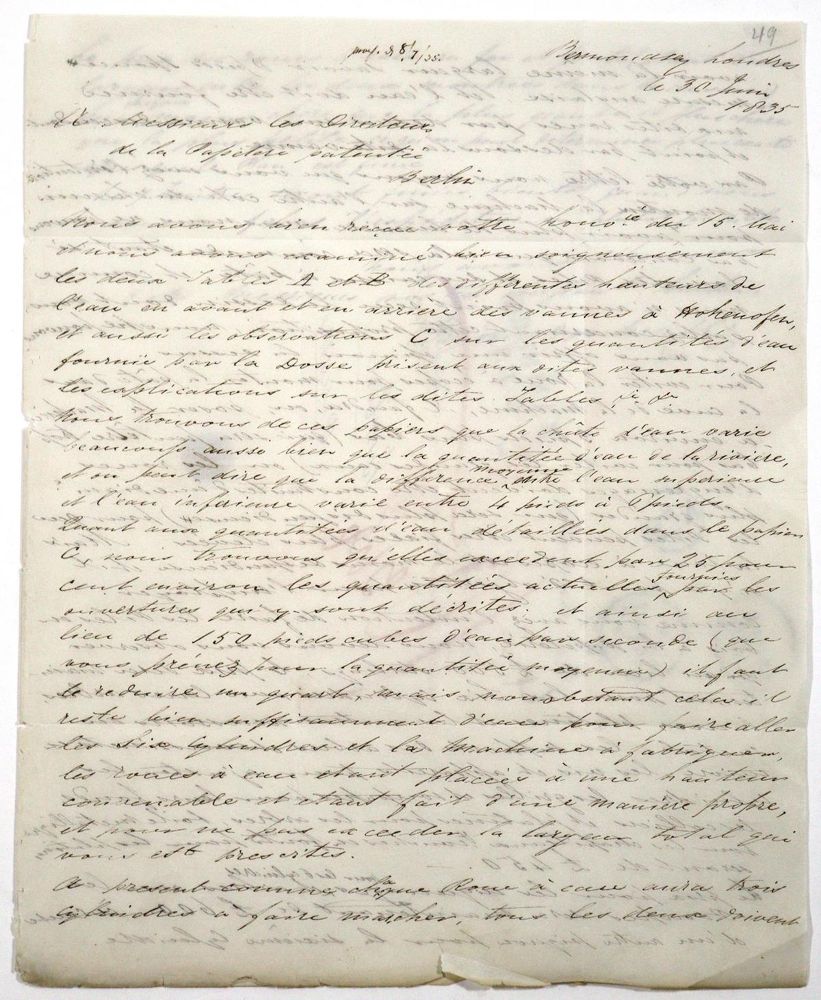 49
8/7/35.
Bermondsey Londres
le 30 Juin
1835
A Messieurs les Directeurs
de la Papeterie patentée
Berlin
Nous avons bien reçue votre hono.ée du 15. Mai
et nous avons examiné bien soigneusement
les deux Tables A et B des differentes hauteurs de
l'eau en avant et en arrière des vannes à Hohenofen,
et aussi les observations C sur les quantités d'eau
fournie par la Dosse aux dites vannes, et
les explications sur les dites Tables
Nous trouvons de ces papiers que la chûte d'eau varie
beaucoup aussi bien que la quantitée d'eau de la rivière,
et on peut dire que la difference moyenne entre l'eau superieure
et l'eau inferieure varie entre 4 pieds à 6 pieds
Quant aux quantitées d'eau détaillées dans le papier
C, nous trouvons qu'elles excedent par 25 pour
cent environ les quantitées actuelles fournies par les
ouvertures qui y sont décrites. et ainsi au
lieu de 150 pieds cubes d'eau par seconde (que
vous prenez pour la quantitée moyenne) il faut
le reduire un quart, mais nonobstant cela il
reste bien suffisamment d'eau pour faire aller
les Six Cylindres et la Machine à fabriquer,
les roues à eau etant placées à une hauteur
convenable et etant fait d'une maniere propre,
et pour ne pas exceeder la largeur total qui
vous est prescrites.
A present comme chaque Roue à eau aura trois
Cylindres à faire marcher, tous les deux doivent